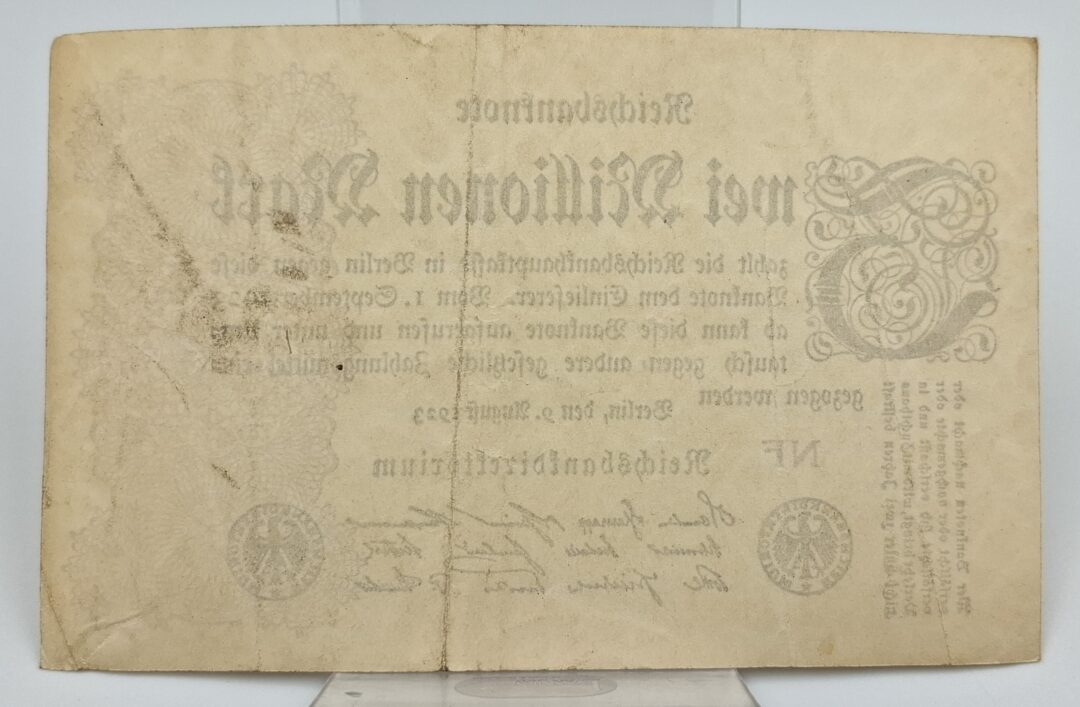 Reichsbanknote
Zwei Millionen Mark
zahlt die Reichsbankhauptkasse in Berlin gegen diese
Banknote dem Einlieferer. Vom 1. September 1923
ab kann diese Banknote aufgerufen und unter Um-
tausch gegen andere gesetzliche Zahlungsmittel ein-
gezogen werden
Berlin, den 9. August 1923
Reichsbankdirektorium
NF
Wer Banknoten nachmacht oder
verfälscht, oder nachgemachte oder
verfälschte sich verschafft und in
Verkehr bringt, wird mit Zuchthaus
nicht unter zwei Jahren bestraft